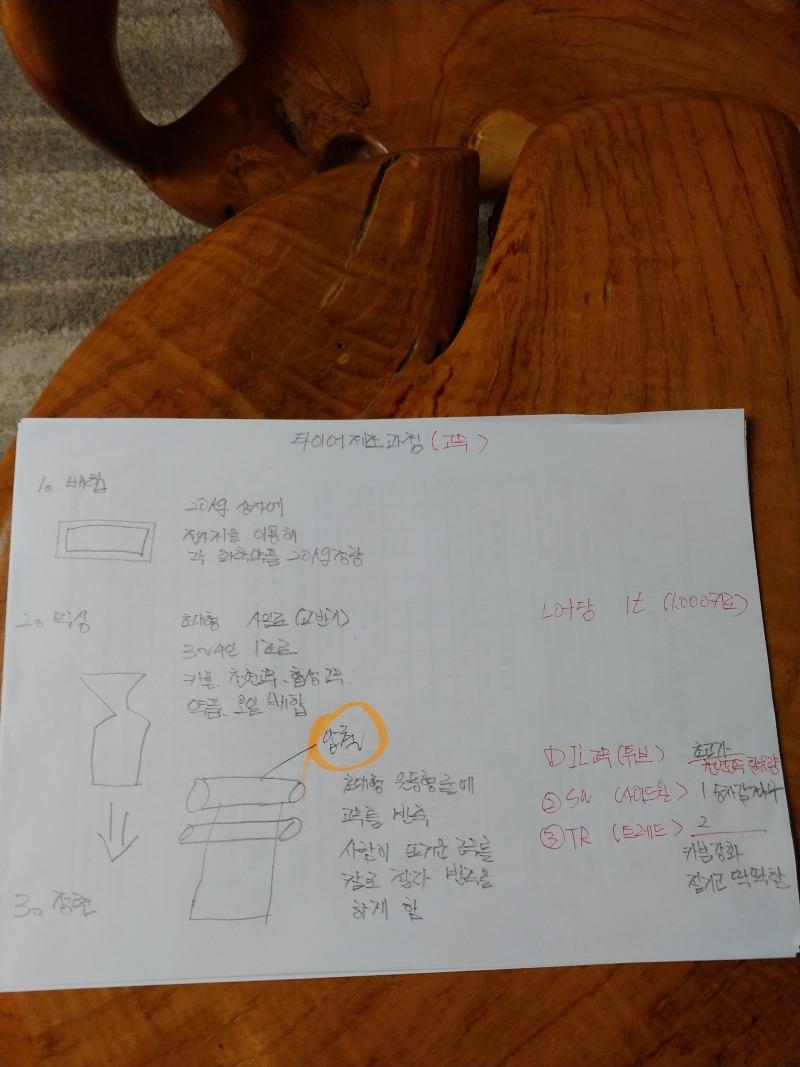 타이어 제조과정 (고무)
1. 배합
20kg 상자에
접자지을 이용해
각 화학약품 20kg 정량
2. 믹싱
초대형 사일로 (교반기)
3~4인 1조로
카본, 천연고무, 합성고무,
약품, 오일 배합
LOT당 1t (1,000키로)
압출
초대형 원통형 롤에
고무를 반죽
사람이 뜨거운 고무를
칼로 잘라 반죽을
하게 함
3. 정련
① IL고무 (튜브) 초고가
천연고무 함유량
② SW (사이드월) 1 승차감
③ TR (트레드) 2
카본강화
질기고 딱딱한